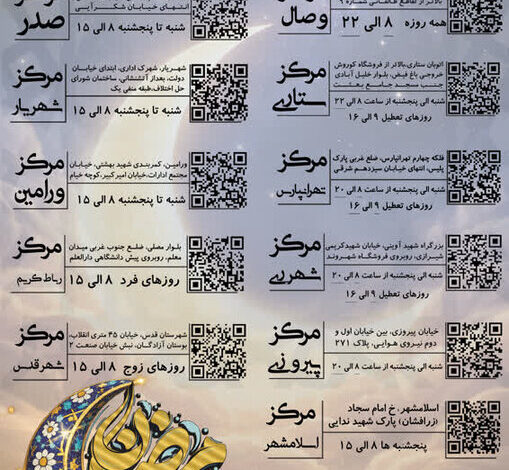 بالاتر از تقاطع طالقانی شماره ۹
وصال
همه روزه ۸ الی ۲۲
انتهای خیابان شکرآیی
صدر
شنبه تا پنجشنبه ۸ الی ۱۵
اتوبان ستاری،بالاتر از فروشگاه کوروش
خروجی باغ فیض، بلوار خلیل آبادی
جنب مسجد جامع بعثت
مرکز
ستاری
شنبه الی پنجشنبه از ساعت ۸ الی ۲۲
روزهای تعطیل ۹ الی ۱۶
شهریار، شهرک اداری، ابتدای خیابان
دولت، بعداز آتشنشانی، ساختمان شورای
حل اختلاف،طبقه منفی یک
مرکز
شهریار
شنبه تا پنجشنبه ۸ الی ۱۵
فلکه چهارم تهرانپارس، ضلع غربی پارک
پلیس، انتهای خیابان سیزدهم شرقی
مرکز
تهرانپارس
شنبه الی پنجشنبه از ساعت ۸ الی ۲۰
روزهای تعطیل ۹ الی ۱۶
ورامین، کمربندی شهید بهشتی، خیابان
مجتمع ادارات،خیابان امیر کبیر،کوچه خیام
مرکز
ورامین
شنبه تا پنجشنبه ۸ الی ۱۵
بزرگراه شهید آوینی، خیابان شهیدکریمی
شیرازی، روبروی فروشگاه شهروند
مرکز
شهرری
شنبه الی پنجشنبه از ساعت ۸ الی ۲۰
روزهای تعطیل ۹ الی ۱۶
بلوار مصلی، ضلع جنوب غربی میدان
معلم، روبروی پیش دانشگاهی دارالعلم
مرکز
رباط کریم
روزهای فرد ۸ الی ۱۵
خیابان پیروزی، بین خیابان اول و
دوم نیروی هوایی، پلاک ۲۷۱
مرکز
پیروزی
شنبه الی پنجشنبه از ساعت ۸ الی ۲۰
شهرستان قدس، خیابان ۴۵ متری انقلاب،
بوستان آزادگان، نبش خیابان صنعت ۲
مرکز
شهرقدس
روزهای زوج ۸ الی ۱۵
اسلامشهر، خ امام سجاد
(زرافشان) پارک شهید ندایی
مرکز
اسلامشهر
پنجشنبه ها ۸ الی ۱۵